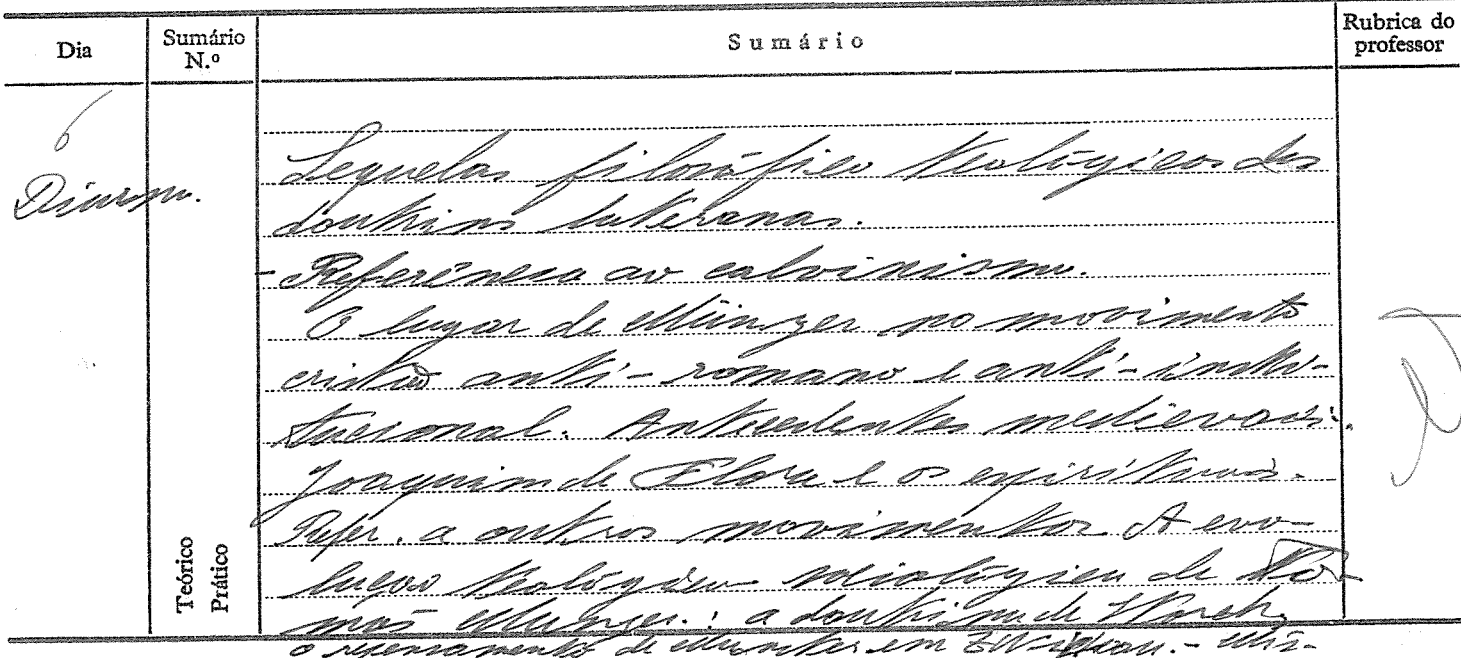 Dia
Sumário N.º
Sumário
Rubrica do professor
6
Diurno.
Sequelas filosófico teológicas das
doutrinas luteranas.
- Referência ao calvinismo.
O lugar de Münzer no movimento
cristão anti-romano e anti-insti-
tucional. Antecedentes medievais:
Joaquim de Flora e os espirituais.
Refer. a outros movimentos. A evo-
lução teológico-sociológica de To-
más Munzer: a doutrina de
o pensamento de Munster em
Teórico
Prático